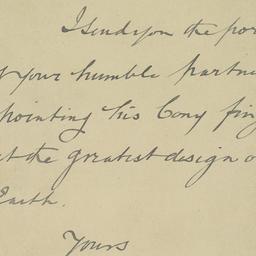 I send you the por
of your humble partne
pointing his bony fin
at the greatest design o
Earth.
Yours